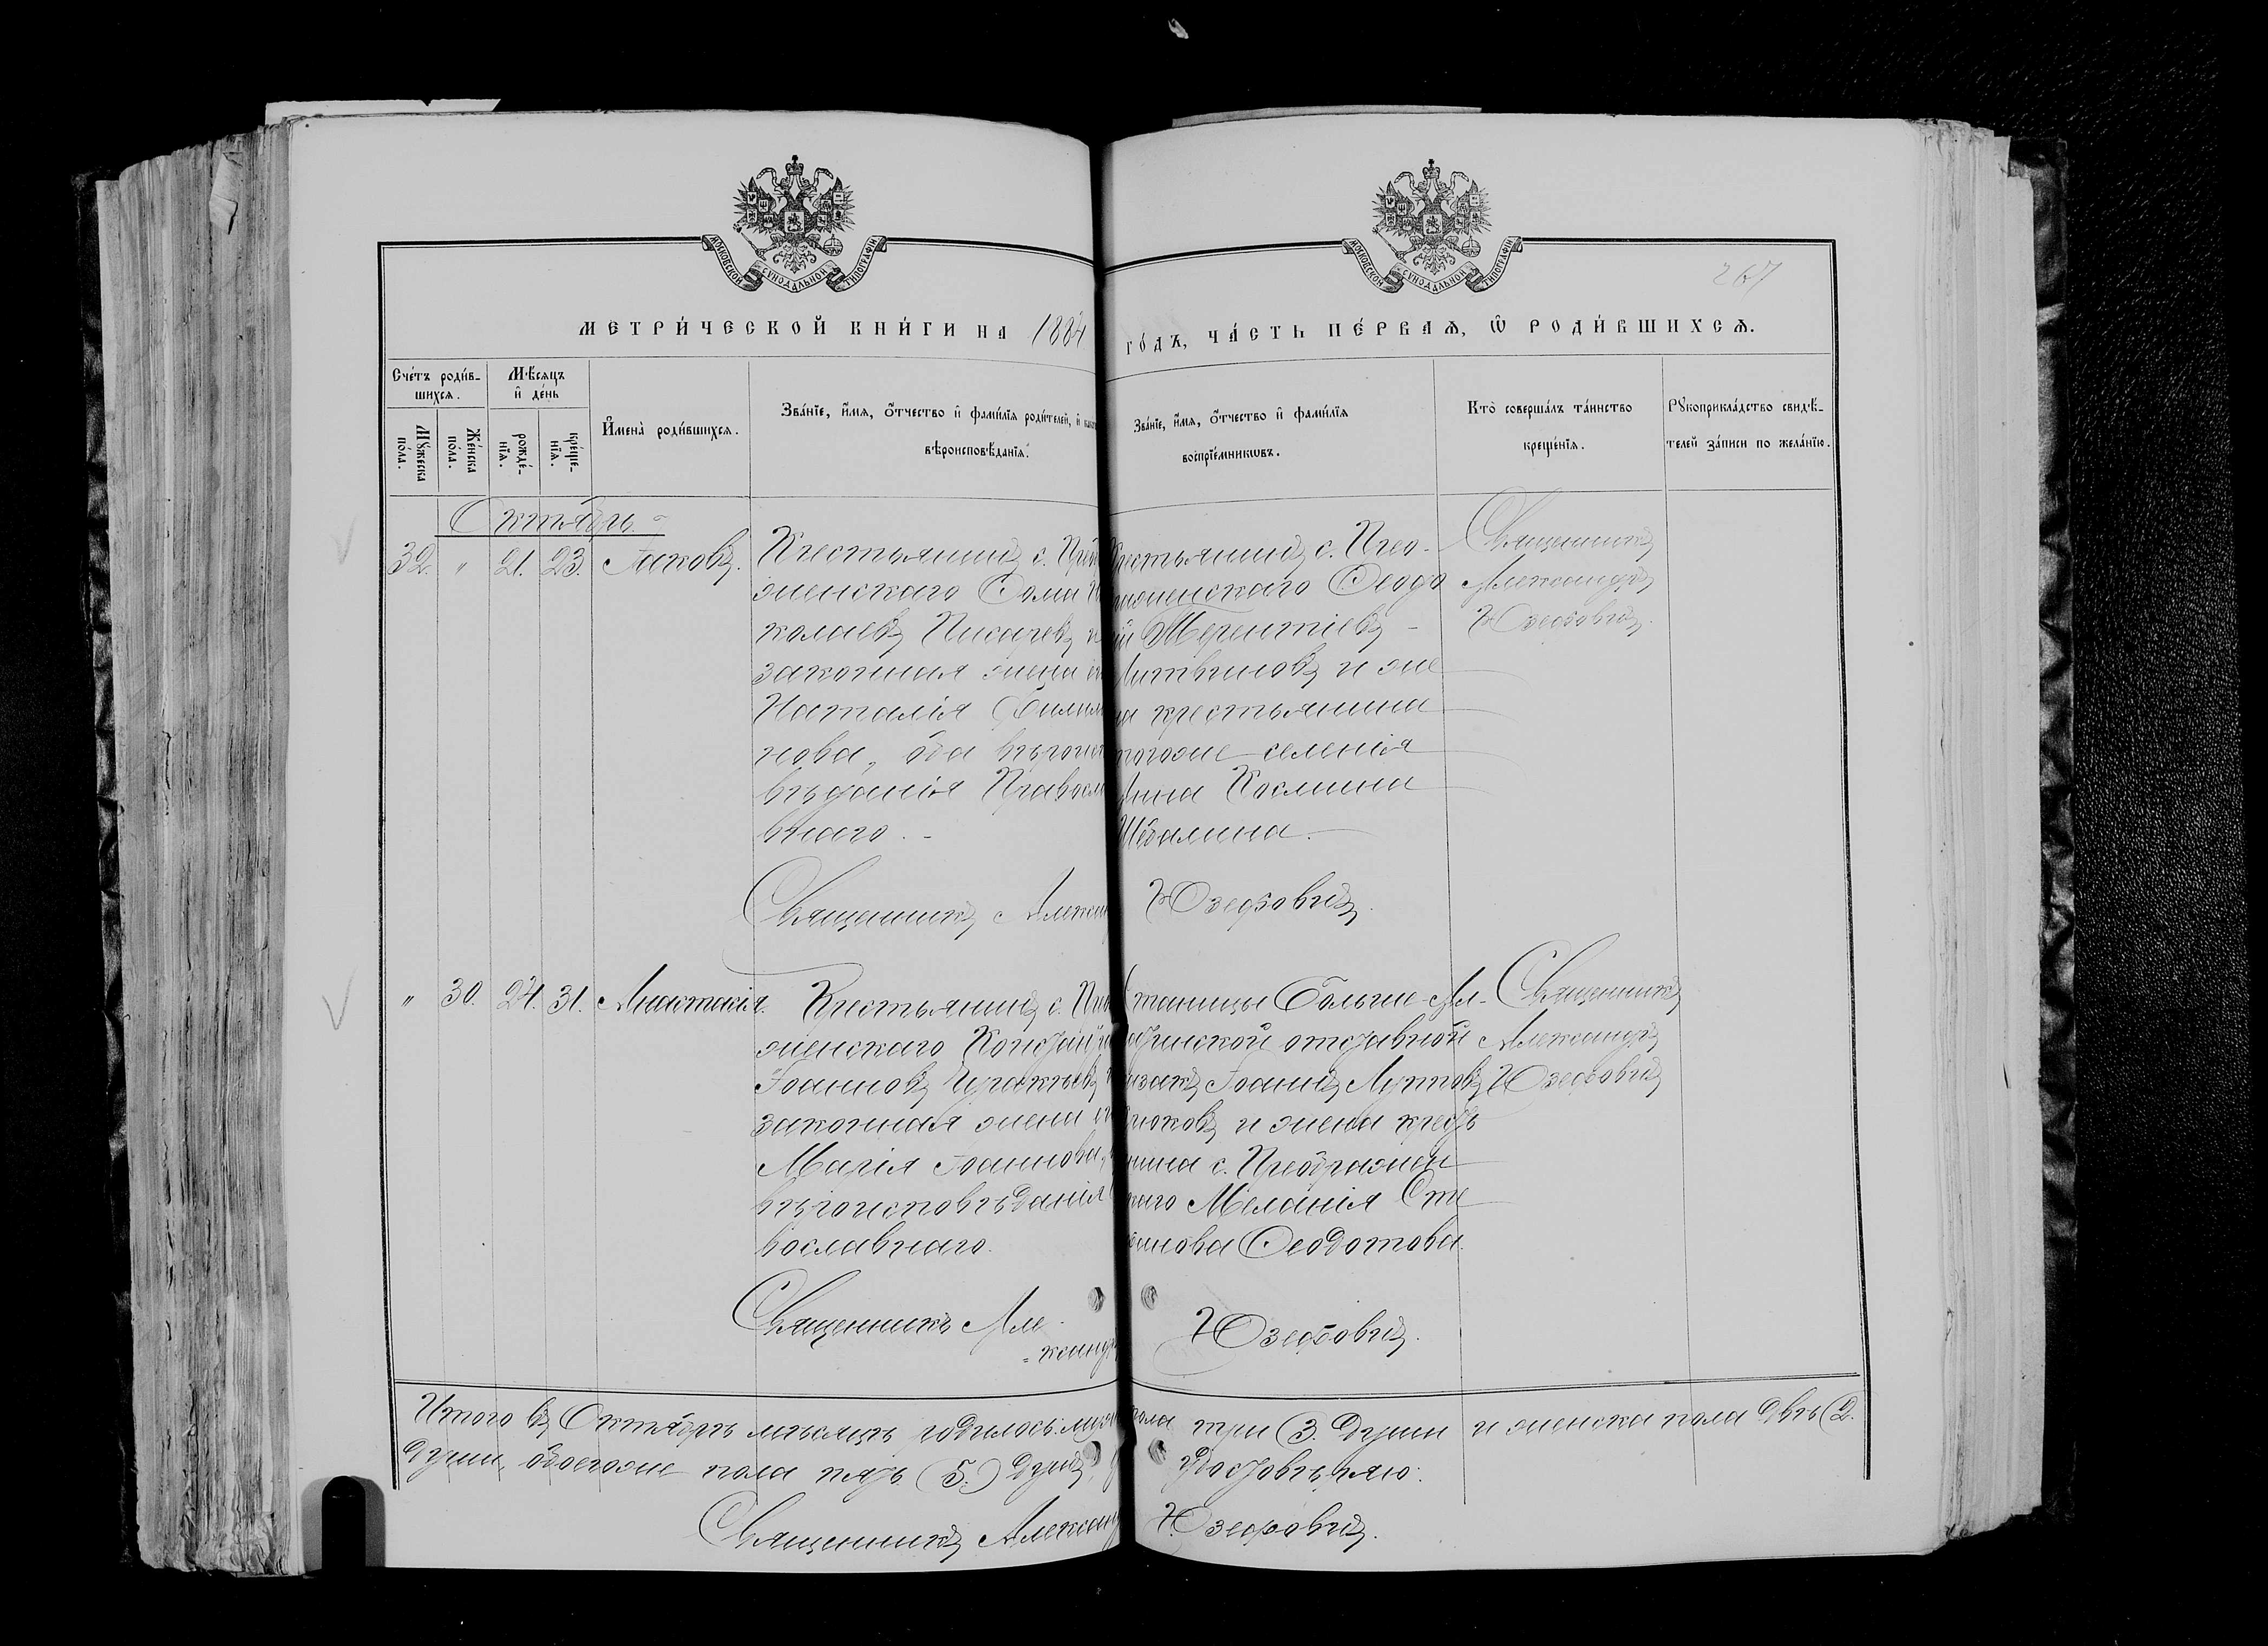 МОСКОВСКОЙ СУНОДАЛЬНОЙ ТИПОГРАФІИ
МОСКОВСКОЙ СУНОДАЛЬНОЙ ТИПОГРАФІИ
267
МЕТРИ́ЧЕСКОЙ КНИ́ГИ НА 1884
ГО́ДЪ, ЧА́СТЬ ПЕ́РВАѦ, Ѡ҆ РОДИ́ВШИХСѦ.
Сче́тъ роди́в-
шихсѧ.
Мѣ́сѧцъ
и҆ де́нь
Мꙋ́жеска
по́ла.
Же́нска
по́ла.
рожде́-
нїѧ.
креще́-
нїѧ.
И҆мена̀ роди́вшихсѧ.
Зва́нїе, и҆́мѧ, ѻ҆́тчество и҆ фами́лїѧ роди́телей, и҆
вѣроисповѣ́данїѧ.
Зва́нїе, и҆́мѧ, ѻ҆́тчество и҆ фами́лїѧ
воспрїе́мникѡвъ.
Кто̀ соверша́лъ та́инство
креще́нїѧ.
Рꙋкоприкла́дство свидѣ́-
телей за́писи по жела́нїю.
Октябрь
32. " 21. 23. Іаковъ.
Крестьянинъ с. Прео
женскаго Ѳома Ни
колаевъ Писаревъ и
законная жена ег
Наталія Филим
нова, оба вѣроис
вѣданія Правосла
внаго.
Священникъ Алексан
Крестьянинъ с. Прео-
женскаго Ѳеодо
ій Терентіевъ
Литвиновъ и же
на крестьянина
тогоже селенія
Анна Космина
Шебалина.
Юзефовичъ.
Священникъ
Александръ
Юзефовичъ.
" 30. 24. 31. Анастасія.
Крестьянинъ с. Прео
женскаго
Іоанновъ
законная жена ег
Марія Іоаннова,
вѣроисповѣданія
вославнаго.
Священникъ Але-
ксандр
Станицы Больше-Ал-
отставной
казакъ Іоаннъ Луповъ
и жена кресть
нина с. Преображен
каго Меланія Сте
анова Ѳеодотова.
Юзефовичъ.
Священникъ
Александръ
Юзефовичъ
Итого въ Октябрѣ мѣсяцѣ родилось: муж
пола три (3. души и женска пола двѣ (2.
души, обоегоже пола пять (5.) душъ,
удостовѣряю:
Священникъ Александ
Юзефовичъ.